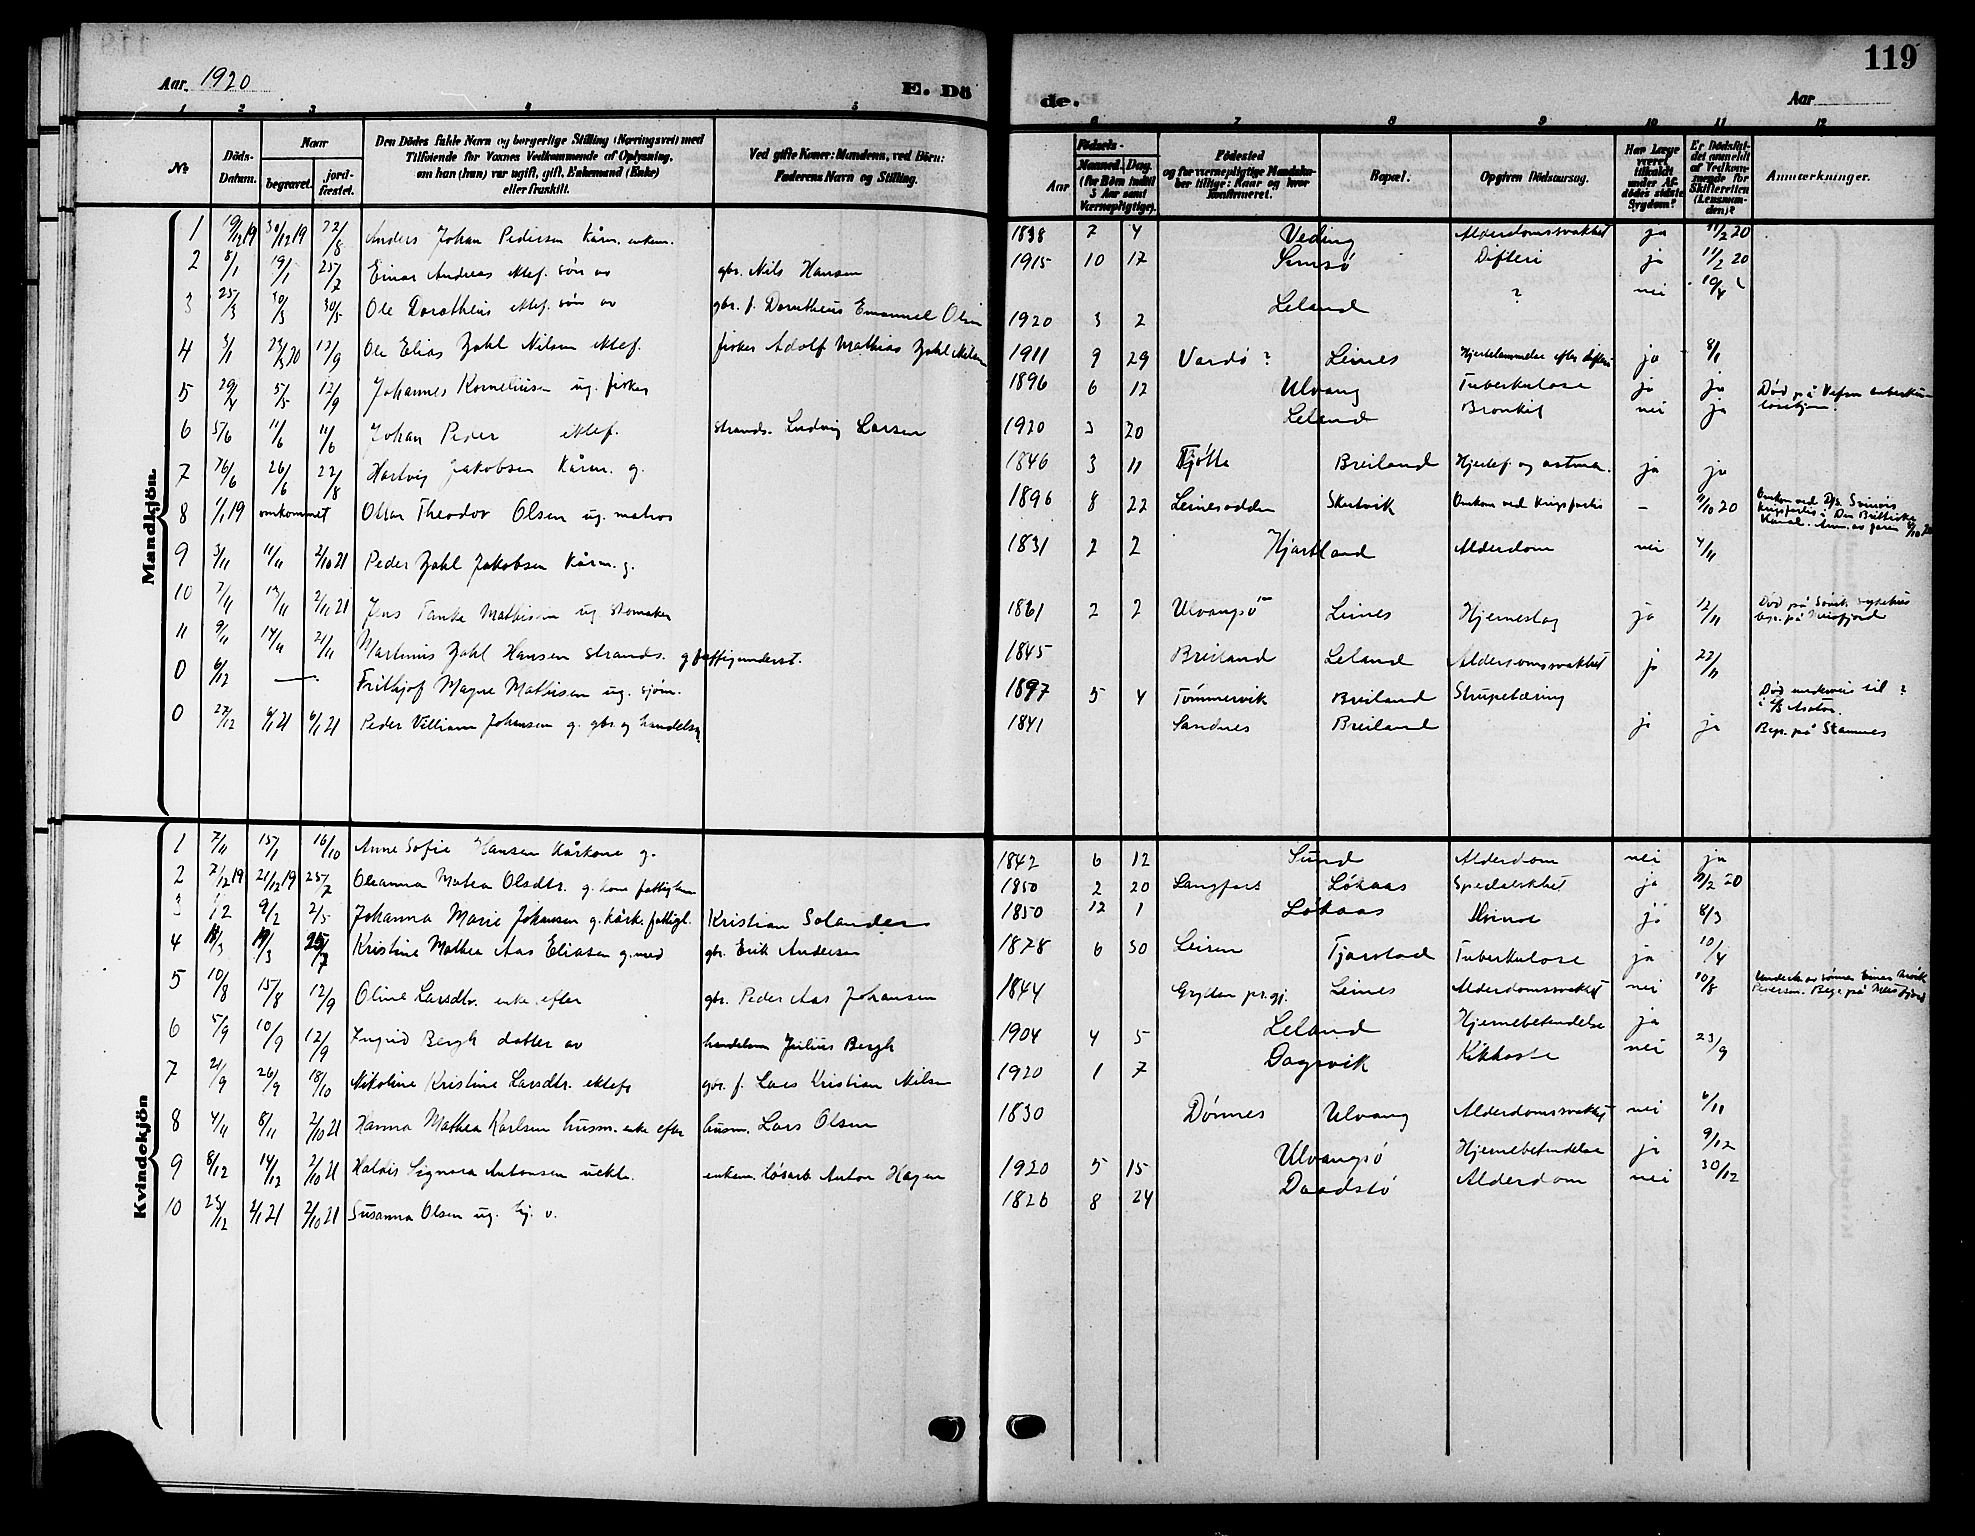 119
Aar. 1920
E. Dö
de.
Aar
1 2 3 4 5
6 7 8 9 10 11 12
No
Döds-Datum.
Naar
begravet.
jord-fæstet.
Den Dödes fulde Navn og borgerlige Stilling (Næringsvei) med
Tilføiende for Voxnes Vedkommende af Oplysning,
om han (hun) var ugift, gift, Enkemand (Enke)
eller fraskilt.
Ved gifte Koner: Mandens, ved Börn:
Faderens Navn og Stilling.
Födsels-
Aar
Maaned. Dag.
(for Börn indtil
5 Aar samt
Værnepligtige).
Födested
og for værnepligtige Mandskaber tillige: Naar og hvor
konfirmeret.
Bopæl.
Opgiven Dödsaarsag.
Har Læge
været
tilkaldt
under Afdödes sidste
Sygdom?
Er Dödsfaldet anmeldt
af Vedkommende for
Skifteretten
(Lensmanden)?
Anmærkninger.
Mandkjön.
1 19/12 19 30/12 19 22/8 Anders Johan Pedersen Kårm. enkem. 1838 2 4 Veding Alderdomssvakhet ja 11/2 20
2 8/1 19/1 25/7 Einar Andreas ektef. søn av gbr. Nils Hansen 1915 10 17 Semsø Difteri ja 11/2 20
3 25/3 30/3 30/5 Ole Dorotheus ektef. søn av gbr. f. Dorotheus Emanuel Olsen 1920 3 2 Leland ? nei 19/4
4 3/1 12/9 Ole Elias Zahl Nilsen ektef. fisker Adolf Mathias Zahl Nilsen 1911 9 29 Vardø ? Leines Hjertelammelse efter difteri ja 8/1
5 29/4 5/5 12/9 Johannes Kornelius ug. fisker 1896 6 12 Ulvang Tuberkulose ja ja Død på Vefsn tuberkuloschjem.
6 5/6 11/6 11/6 Johan Peder ektef. strands. Ludvig Larsen 1920 3 20 Leland Bronkit nei ja
7 26/6 22/8 Hartvig Jakobsen Kårm. g. 1846 3 11 Tjøtta Breiland Hjertef. og astma. ja ja
8 1/1 19 omkommet Oskar Theodor Olsen ug. matros 1896 8 22 Leinesodden Skartvik Omkom ved Krigsforlis - 11/10 20 Omkom ved D/S
Krigsforlis i Den Brittiske
Kanal.
9 3/11 11/11 2/10 21 Peder Zahl Jakobsen Kårm. g. 1831 2 2 Hjartland Alderdom nei 4/11
10 7/11 2/11 21 Jens Tanke Mathisen ug. skomaker 1861 2 2 Ulvangsø Leines Hjerneslag ja 12/11 Død på Sandn. sykehus
11 9/11 14/11 2/11 Martinus Zahl Hansen strands. g fattigunderst. 1845 Breiland Leland Alderdomssvakhet ja 22/11
0 6/12 — Frithjof Magne Mathisen ug. sjøm. 1897 5 4 Tømmervik Breiland Strupetæring Død underveis til ?
0 27/12 6/1 21 6/1 21 Peder Villiam Johansen g. gbr. og handelsm. 1841 Sandnes Breiland ja ja Begr. på Stamnes
Kvindekjön
1 7/11 15/1 16/10 Anne Sofie Hansen Kårkone g. 1842 6 12 Sund Alderdom nei ja
2 7/12 19 21/12 19 25/7 Oleanna Matea Olsdtr. g. kone fattiglem 1850 2 20 Langfors Løkaas Spedalskhet ja 11/2 20
3 1/2 9/2 2/5 Johanna Marie Johansen g. kårk. fattigl. Kristian Solander 1850 12 1 Løkaas ja 8/3
4 18/3 19/3 25/7 Kristine Mathea Aas Eliasen g. med gbr. Erik Andersen 1878 6 30 Leiren Tjørstad Tuberkulose ja 10/4
5 10/8 15/8 12/9 Oline Larsdtr. enke efter gbr. Peder Aas Johansen 1844 Grytten pr.gj. Leines Alderdomssvakhet nei 10/8
6 5/9 10/9 12/9 Ingrid Bergh datter av handelsm Julius Bergh 1904 4 5 Leland Hjernebetendelse ja
7 21/9 26/9 18/10 Nikoline Kristine Larsdtr. ektef. gbr. f. Lars Kristian Nilsen 1920 1 7 Dagsvik Kikhoste nei 23/9
8 4/11 8/11 2/10 21 Hanna Mathea Karlsen husm. enke efter husm. Lars Olsen 1830 Dønnes Ulvang Alderdomssvakhet nei 6/11
9 8/12 14/12 2/10 21 Haldis Signora Antonsen uekte. enkem. løsarb. Anton Hagen 1920 5 15 Ulvangsø Hjernebetendelse ja 9/12
10 23/12 4/1 21 2/10 21 Susanna Olsen ug. 1826 8 24 Daadstø Alderdom nei 30/12